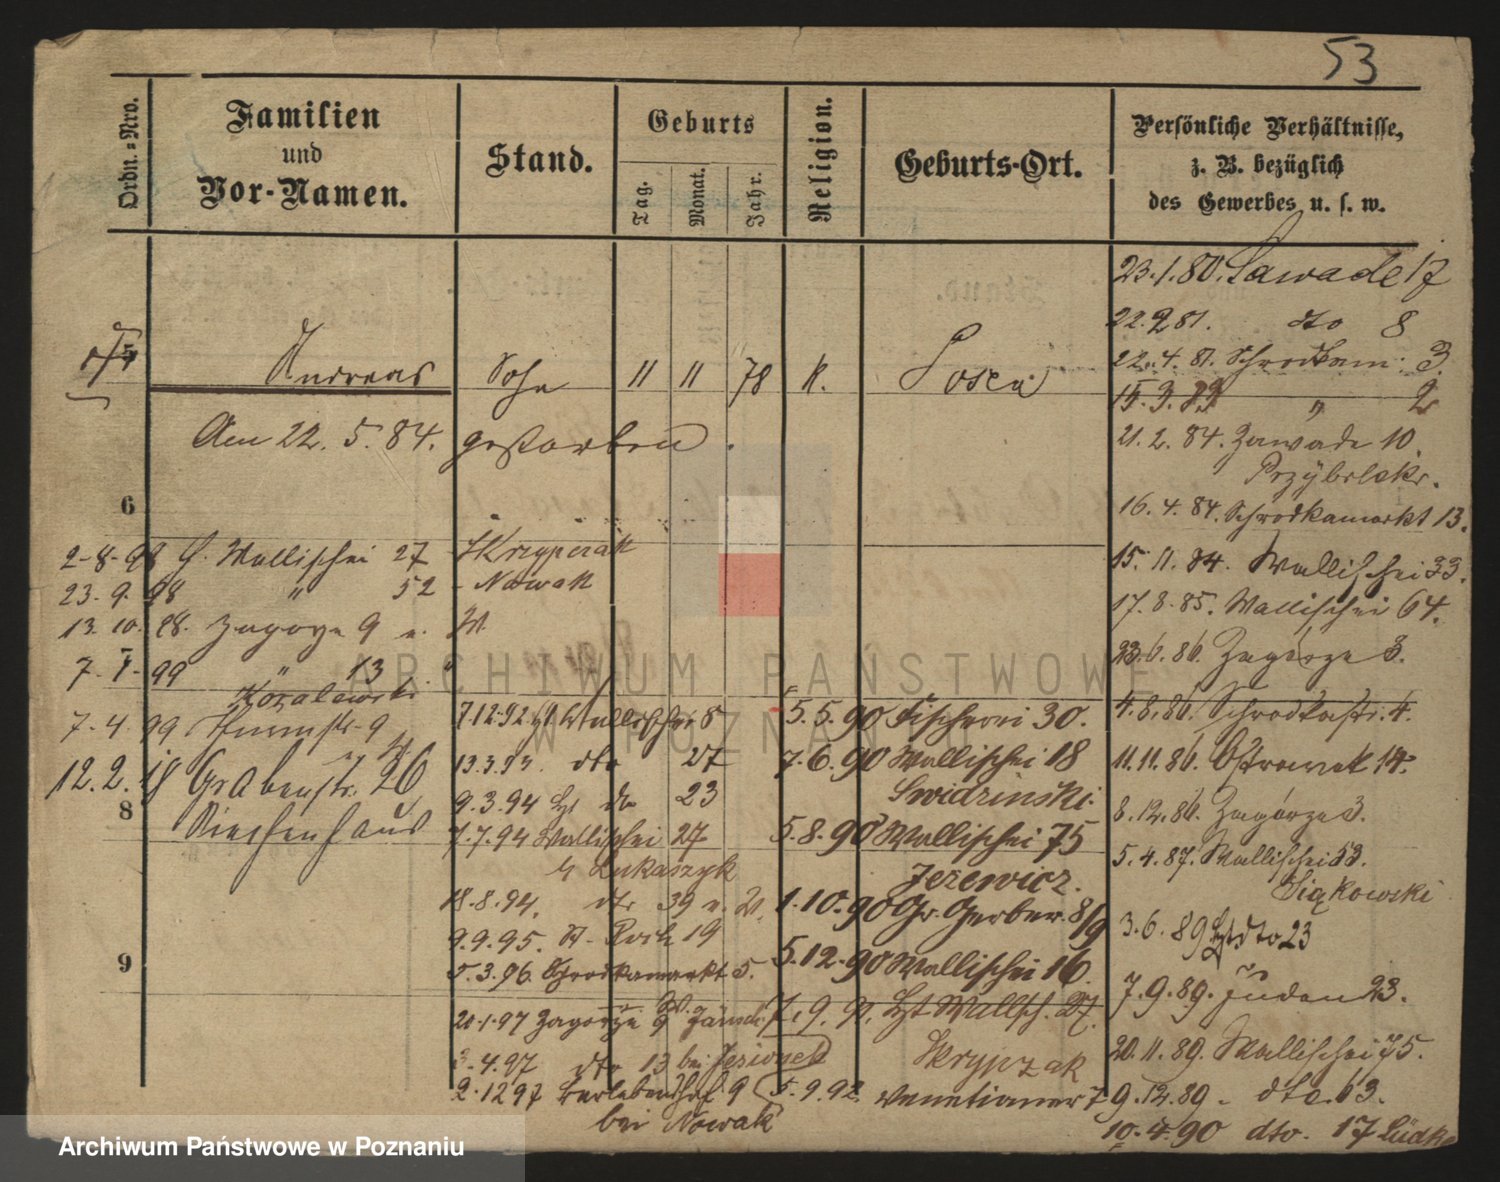 53
Ordn.=Nro.
Familien
und
Vor-Namen.
Stand.
Geburts
Tag.
Monat.
Jahr.
Religion.
Geburts-Ort.
Persönliche Verhältnisse,
z. B. bezüglich
des Gewerbes u. s. w.
5
Andreas Sohn 11 11 78 K. Posen
Am 22. 5. 84. gestorben.
6
2-8-98 H. Wallischei 27 Skrzypczak
23. 9. 98 " 52 - Nowak
13. 10. 98. Zagorze 9 u. W
7
7-1-99 " 13
Kowalewski
7-4-99 Thurmstr. 9
12.2. Grabenstr. 26
8
9
7.12.92. Wallischei 8
13.3.93. dto 27
9.3.94 dto 23
7.7.94 Wallischei 27
Lukaszyk
18.8.94. dto 39 u. W.
9.9.95. St. Roch 19
5.3.96. Schrodkamarkt 5.
20.1.97 Zagorze 9
3.4.97 dto 13 bei Jesionek
2.12 97 Berlebenshof. 9
bei Nowak
5.5.90 Fischerei 30.
7.6.90 Wallischei 18
Swidzinski.
5.8.90 Wallischei 75
Jezewicz.
1.10.90 Gr. Gerber. 8/9
5.12.90 Wallischei 16.
7.9.91. Wallisch. 27.
Skrypzak
5.9.92. Venetianer 7
23.1.80. Sawade 17
22.2 81. dto 8
22.4.81. Schrodkam. 3.
15.3.83 " 2
21.2.84. Zawade 10.
16.4.84. Schrodkamarkt 13.
15.11.84. Wallischei 33.
17.8.85. Wallischei 64.
23.6.86. Zagorze 3.
4.8.86. Schrodkastr. 4.
11.11.86. Ostrowek 14.
8.12.86. Zagorze 3.
5.4.87. Wallischei 53.
Siąkowski
3.6.89 dto 23
7.9.89. Juden 23.
20.11.89. Wallischei 75.
9.12.89. dto. 63.
10.4.90 dto. 17 Lüdke
ARCHIWUM PAŃSTWOWE
W POZNANIU
Archiwum Państwowe w Poznaniu